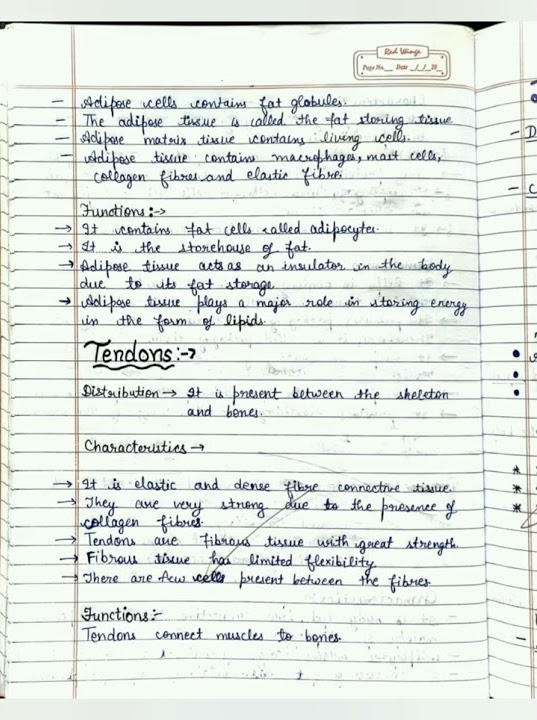 Red Wings
Page No. Date / / 20
- Adipose cells contains fat globules.
- The adipose tissue is called the fat storing tissue
- Adipose matrix tissue contains living cells.
- Adipose tissue contains macrophages, mast cells,
collagen fibres and elastic fibre.
Functions:->
→ It contains fat cells called adipocytes.
→ It is the storehouse of fat.
→ Adipose tissue acts as an insulator in the body
due to its fat storage
→ Adipose tissue plays a major role in storing energy
in the form of lipids.
Tendons:->
Distribution → It is present between the skeleton
and bones.
Characteristics →
→ It is elastic and dense fibre connective tissue.
→ They are very strong due to the presence of
collagen fibres.
→ Tendons are fibrous tissue with great strength.
→ Fibrous tissue has limited flexibility.
→ There are few cells present between the fibres
Functions:-
Tendons connect muscles to bones.